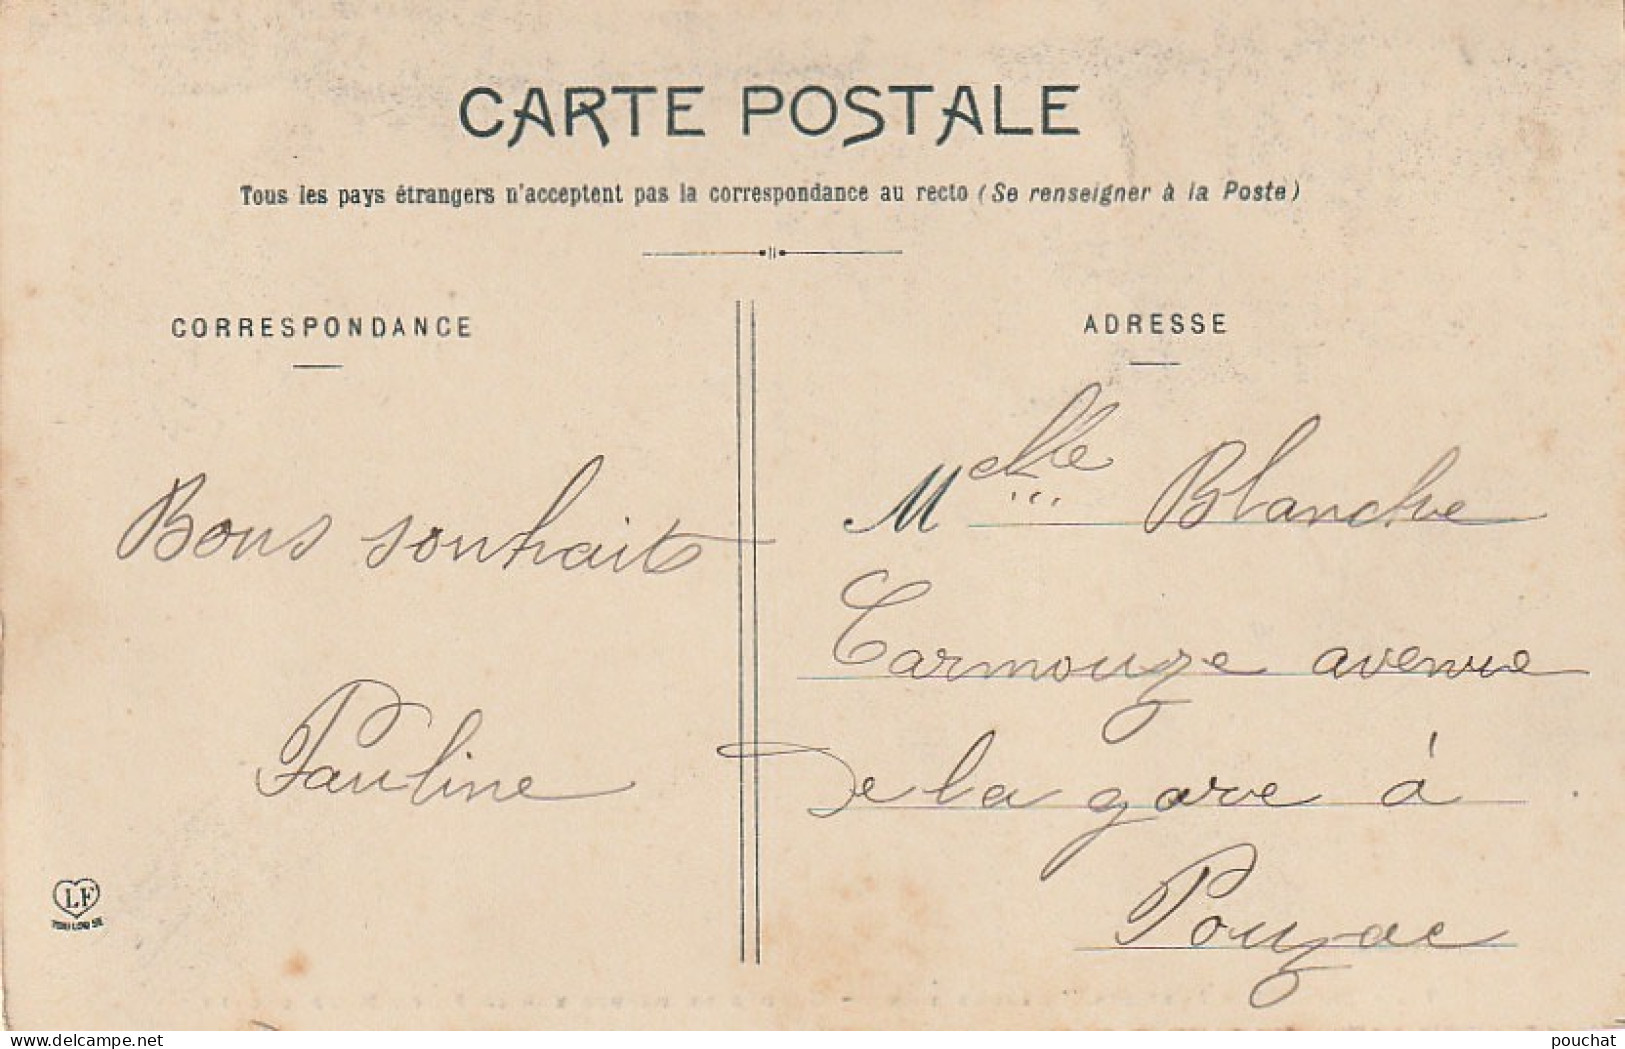 CARTE POSTALE
Tous les pays étrangers n'acceptent pas la correspondance au recto (Se renseigner à la Poste)
CORRESPONDANCE
Bons souhaits
Pauline
LF
TOULOUSE
ADRESSE
Melle Blanche
Carmouze avenue
de la gare à
Pouzac
delcampe.net
pouchat